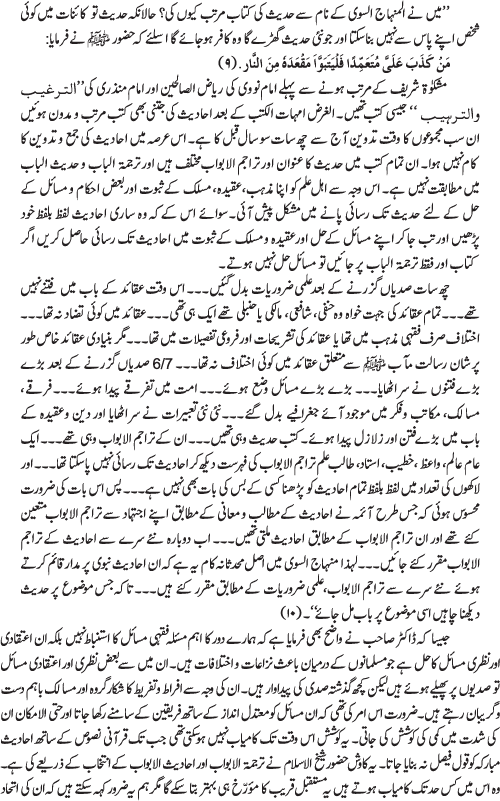 ’’میں نے المنہاج السوی کے نام سے حدیث کی کتاب مرتب کیوں کی؟ حالانکہ حدیث تو کائنات میں کوئی
شخص اپنے پاس سے نہیں بنا سکتا اور جو نئی حدیث گھڑے گا وہ کافر ہوجائے گا اسلئے کہ حضور ﷺ نے فرمایا:
مَنْ كَذَبَ عَلَىَّ مُتَعَمِّدًا فَلْيَتَبَوَّأ مَقْعَدَهُ مِنَ النَّار. (۹)
مشکوٰۃ شریف کے مرتب ہونے سے پہلے امام نووی کی ریاض الصالحین اور امام منذری کی ’’الترغیب
والترہیب‘‘ جیسی کتب تھیں۔ الغرض امہات الکتب کے بعد احادیث کی جتنی بھی کتب مرتب و مدون ہوئیں
ان سب مجموعوں کا وقت تدوین آج سے چھ سات سو سال قبل کا ہے۔ اس عرصہ میں احادیث کی جمع و تدوین کا
کام نہیں ہوا۔ ان تمام کتب میں حدیث کا عنوان اور تراجم الابواب مختلف ہیں اور ترجمۃ الباب و حدیث الباب
میں مطابقت نہیں ہے۔ اس وجہ سے اہل علم کو اپنا مذہب، عقیدہ، مسلک کے ثبوت اور بعض احکام و مسائل کے
حل کے لئے حدیث تک رسائی پانے میں مشکل پیش آئی۔ سوائے اس کے کہ وہ ساری احادیث لفظ بلفظ خود
پڑھیں اور تب جا کر اپنے مسائل کے حل اور عقیدہ و مسلک کے ثبوت میں احادیث تک رسائی حاصل کریں اگر
کتاب اور فقط ترجمۃ الباب پر جائیں تو مسائل حل نہیں ہوتے۔
چھ سات صدیاں گزرنے کے بعد علمی ضروریات بدل گئیں۔۔۔ اس وقت عقائد کے باب میں فتنے نہیں
تھے۔۔۔ تمام عقائد کی جہت خواہ وہ حنفی، شافعی، مالکی یا حنبلی تھے ایک ہی تھی۔۔۔ عقائد میں کوئی تضاد نہ تھا۔۔۔
اختلاف صرف فقہی مذہب میں تھا یا عقائد کی تشریحات اور فروعی تفصیلات میں تھا۔۔۔ مگر بنیادی عقائد خاص طور
پر شان رسالت مآب ﷺ سے متعلق عقائد میں کوئی اختلاف نہ تھا۔۔۔ 6/7 صدیاں گزرنے کے بعد بڑے
بڑے فتنوں نے سر اٹھایا۔۔۔ بڑے بڑے مسائل وضع ہوئے۔۔۔ امت میں تفرقے پیدا ہوئے۔۔۔ فرقے،
مسالک، مکاتب و فکر میں موجود آئے جغرافیے بدل گئے۔۔۔ نئی نئی تعبیرات نے سر اٹھایا اور دین و عقیدہ کے
باب میں بڑے فتن اور زلازل پیدا ہوئے۔ کتب حدیث وہی تھیں۔۔۔ ان کے تراجم الابواب وہی تھے۔۔۔ ایک
عام عالم، واعظ، خطیب، استاد، طالب علم تراجم الابواب کی فہرست دیکھ کر احادیث تک رسائی نہیں پا سکتا تھا۔۔۔ اور
لاکھوں کی تعداد میں لفظ بلفظ تمام احادیث کو پڑھنا کسی کے بس کی بات بھی نہیں ہے۔۔۔ پس اس بات کی ضرورت
محسوس ہوئی کہ جس طرح آئمہ نے احادیث کے مطالب و معانی کے مطابق اپنے اجتہاد سے تراجم الابواب متعین
کئے تھے اور ان تراجم الابواب کے مطابق احادیث ملتی تھیں۔۔۔ اب دوبارہ نئے سرے سے احادیث کے تراجم
الابواب مقرر کئے جائیں۔۔۔ لہٰذا منہاج السوی میں اصل محدثانہ کام یہ ہے کہ ان احادیث نبوی پر مدار قائم کرتے
ہوئے نئے سرے سے تراجم الابواب، علمی ضروریات کے مطابق مقرر کئے گئے ہیں۔۔۔ تاکہ جس موضوع پر حدیث
دیکھنا چاہیں اسی موضوع پر باب مل جائے‘‘۔ (۱۰)
جیسا کہ ڈاکٹر صاحب نے واضح بھی فرمایا ہے کہ ہمارے دور کا اہم مسئلہ فقہی مسائل کا استنباط نہیں بلکہ ان اعتقادی
اور نظری مسائل کا حل ہے جو مسلمانوں کے درمیان باعث نزاعات و اختلافات ہیں۔ ان میں سے بعض نظری اور اعتقادی مسائل
تو صدیوں پر پھیلے ہوئے ہیں لیکن کچھ گذشتہ صدی کی پیداوار ہیں۔ ان کی وجہ سے افراط و تفریط کا شکار گروہ اور مسالک باہم دست
و گریبان رہتے ہیں۔ ضرورت اس امر کی تھی کہ ان مسائل کو معتدل انداز کے ساتھ فریقین کے سامنے رکھا جاتا اور حتی الامکان ان
کی شدت میں کمی کی کوشش کی جاتی۔ یہ کوشش اس وقت تک کامیاب نہیں ہو سکتی تھی جب تک قرآنی نصوص کے ساتھ احادیث
مبارکہ کو قول فیصل نہ بنایا جاتا۔ یہ کاوش حضور شیخ الاسلام نے ترجمۃ الابواب اور احادیث الابواب کے انتخاب کے ذریعے کی ہے۔
وہ اس میں کس حد تک کامیاب ہوتے ہیں یہ مستقبل قریب کا مؤرخ ہی بہتر بتا سکے گا مگر ہم یہ ضرور کہہ سکتے ہیں کہ ان کی اتحاد